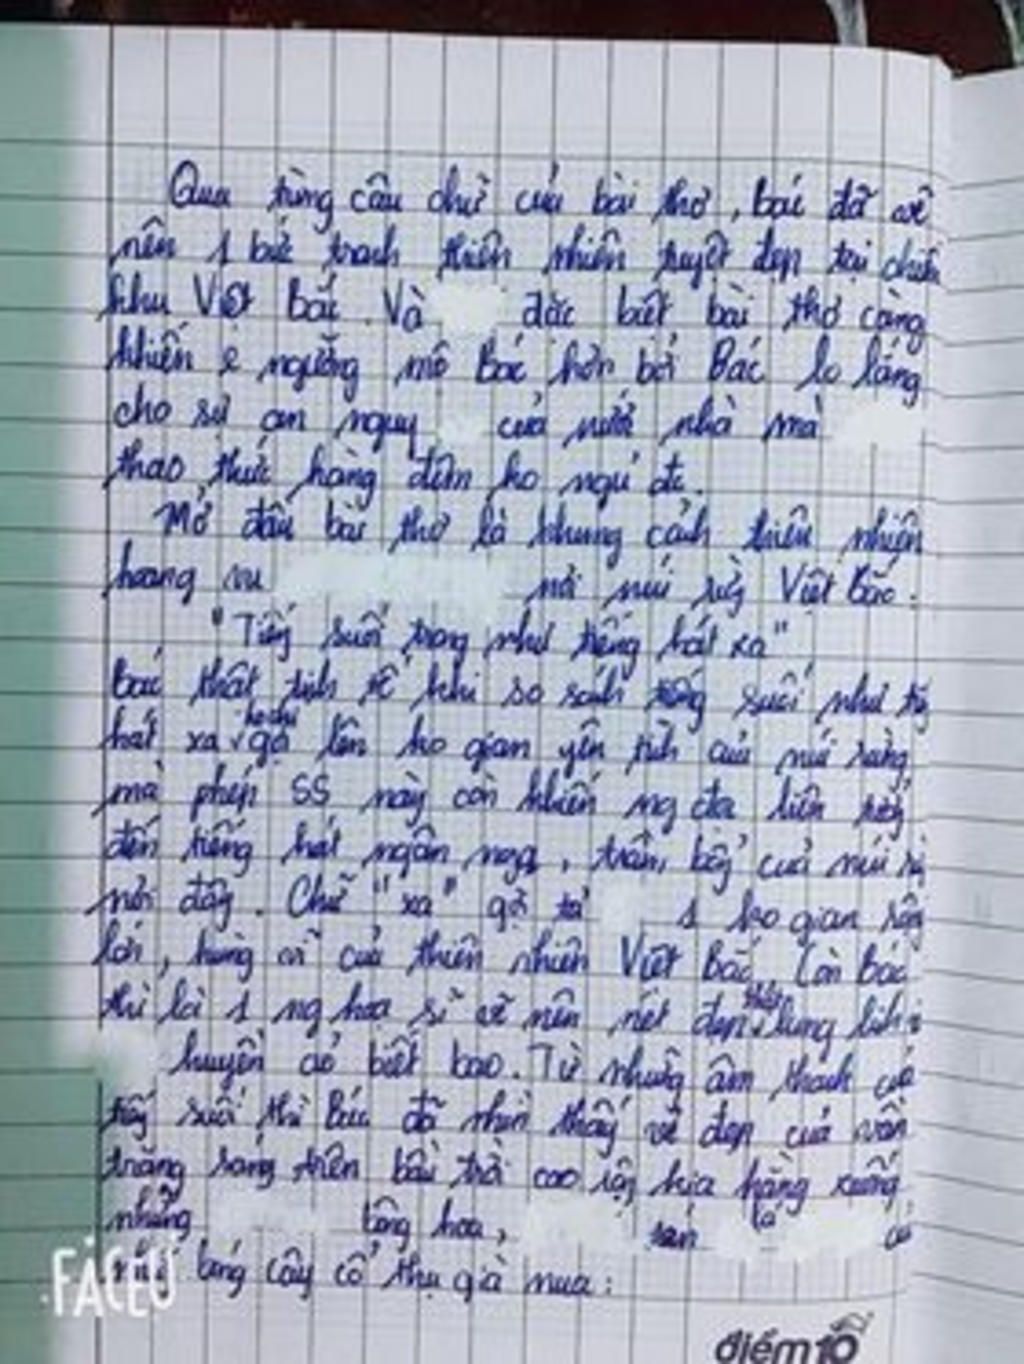 Qua từng câu chữ của bài thơ, bác đã vẽ
nên 1 bức tranh thiên nhiên tuyệt đẹp tại chiến
khu Việt bắc. Và đặc biệt bài thơ càng
khiến e ngưỡng mộ Bác hơn bởi Bác lo lắng
cho sự an nguy của nước nhà mà
thao thức hàng đêm ko ngủ đc.
Mở đầu bài thơ là khung cảnh thiên nhiên
hoang vu nơi núi rừng Việt Bắc:
"Tiếng suối trong như tiếng hát xa"
bác thật tinh tế khi so sánh tiếng suối như
hát xa, ko chỉ gợi lên ko gian yên tĩnh của núi rừng
mà phép SS này còn khiến ng đọc liên tưởng
đến tiếng hát ngân nga, trầm bổng của núi
nơi đây. Chữ "xa" gợi tả 1 ko gian rộng
lớn, hùng vĩ của thiên nhiên Việt Bắc. Còn Bác
thì là 1 ng họa sĩ vẽ nên nét đẹp lung linh
huyền ảo biết bao. Từ những âm thanh của
tiếng suối thì Bác đã nhìn thấy vẻ đẹp của vầng
trăng sáng trên bầu trời cao rộng kia xuống
những bông hoa, tán lá
bóng cây cổ thụ già nua:
FACEU
điểm10